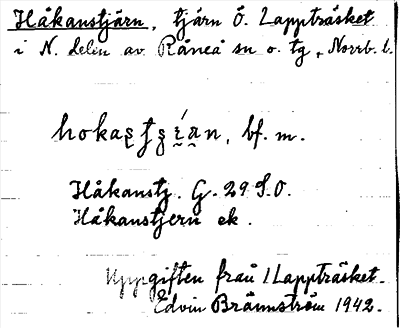 Håkanstjärn, tjärn Ö. Lappträsket
i N. delen av Råneå sn o. tg, Norrb. l.
bf. m.
Håkanstj. G. 29 S.O.
Håkanstjern ek.
Uppgiften från 1 Lappträsket.
Edvin Brännström 1942.